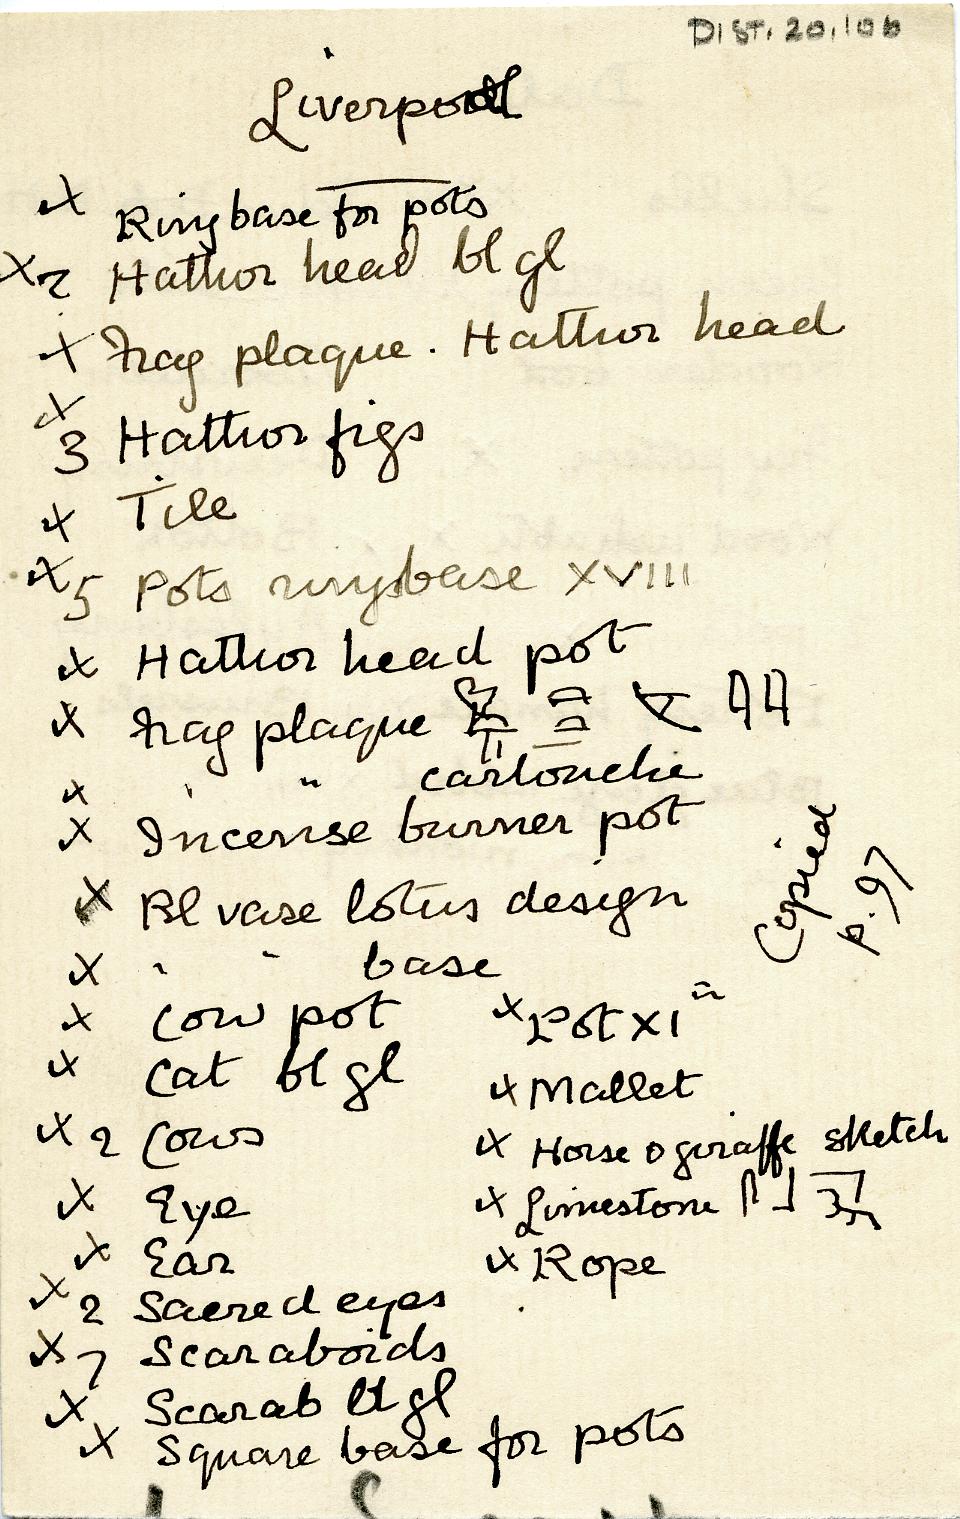 DIST. 20.10b
Liverpool
x Ring base for pots
x 2 Hathor head bl gl
x Frag plaque. Hathor head
x 3 Hathor figs
x Tile
x 5 Pots ring base XVIII
x Hathor head pot
x Frag plaque
x " " cartouche
x Incense burner pot
x Bl vase lotus design
x " " base
x Cow pot
x Cat bl gl
x 2 Cows
x Eye
x Ear
x 2 Sacred eyes
x 7 Scaraboids
x Scarab bl gl
x Square base for pots
x Pot XI
x Mallet
x Horse & giraffe sketch
x Limestone
x Rope
Copied
p. 97